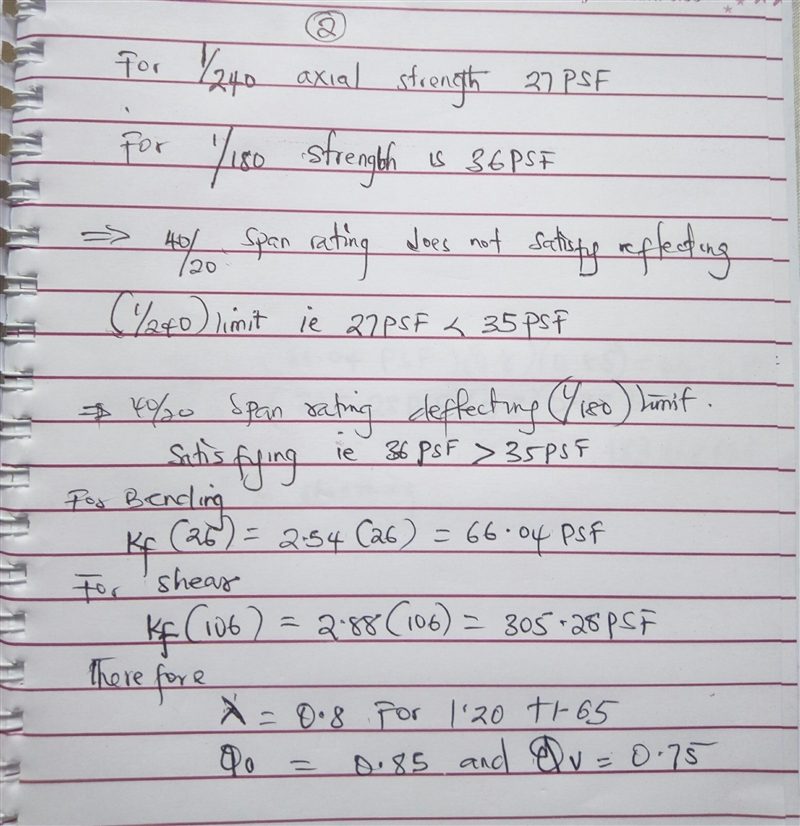 ②
For 1/240 axial strength 27PSF
For 1/180 strength is 36PSF
⇒ 40/20 span rating does not satisfy reflecting
(1/240) limit ie 27PSF < 35PSF
⇒ 40/20 span rating deffecting (1/180) limit.
Satisfying ie 36PSF > 35PSF
For Bending
Kf (26) = 2.54 (26) = 66.04 PSF
For shear
Kf (106) = 2.88 (106) = 305.28PSF
Therefore
λ = 0.8 For 1.20 + 1.65
Φo = 0.85 and Φv = 0.75